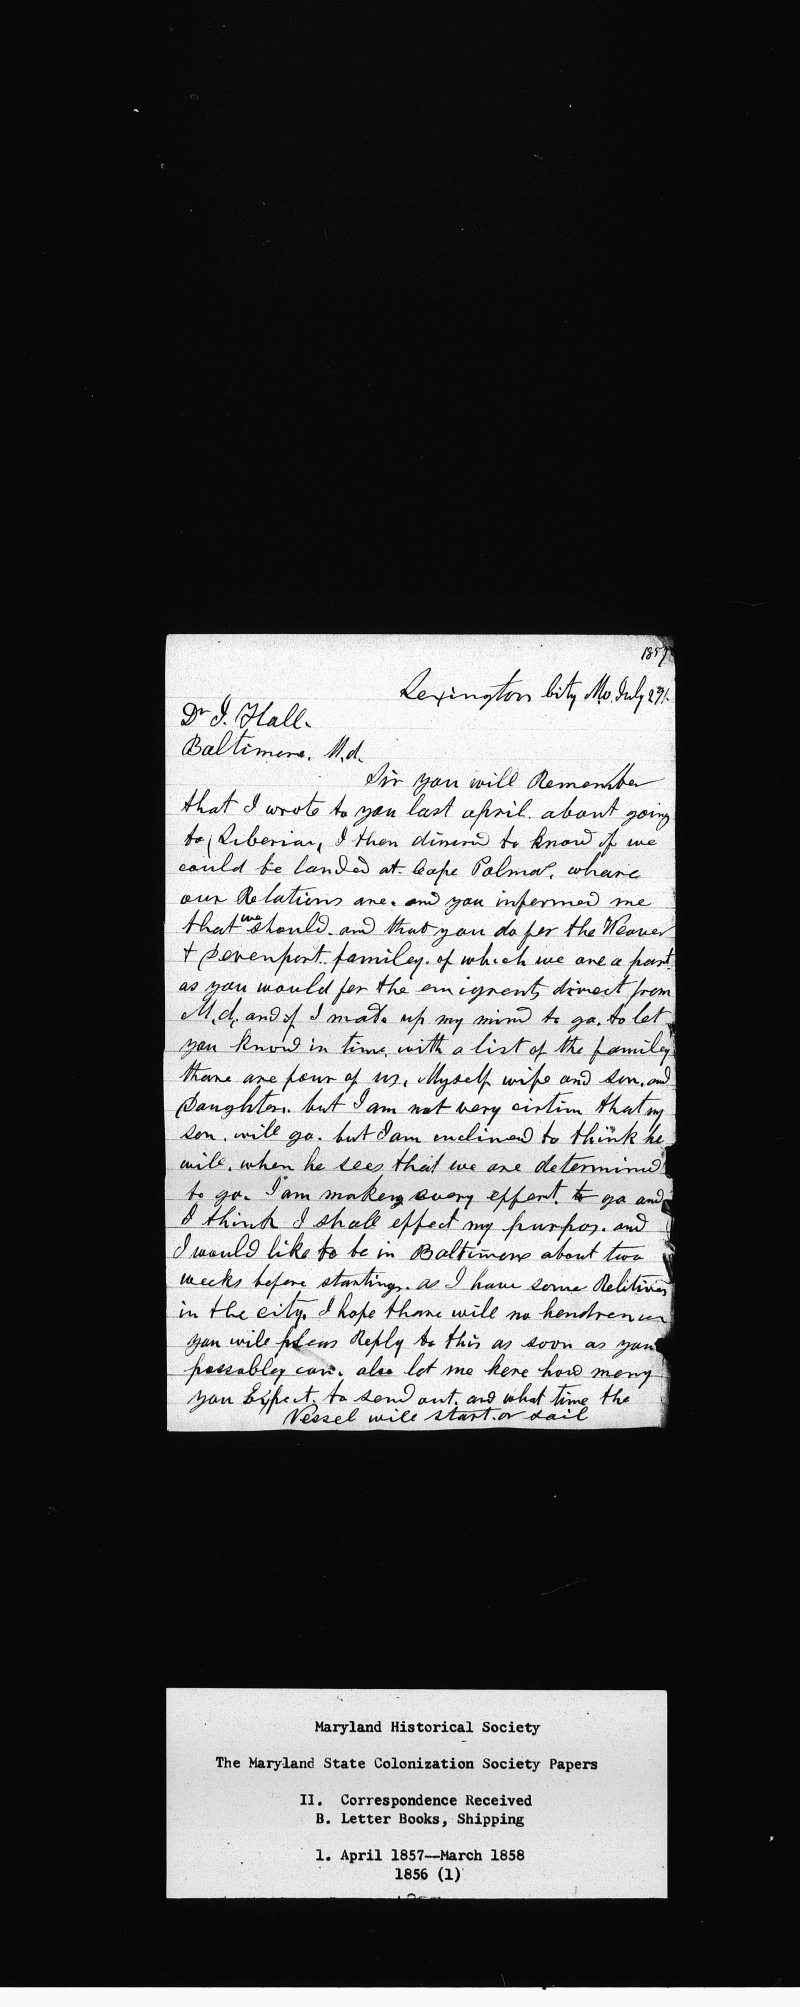 1857
Lexington City Mo. July 29/.
Dr J. Hall.
Baltimore. M.d.
Sir you will Remember
that I wrote to you last april. about going
to Liberia, I then disired to know if we
could be landed at Cape Palmas. whare
our Relations are. and you informed me
that we should. and that you do for the Weaver
& Devenport familey. of which we are a part.
as you would for the emigrents direct from
M.d, and if I made up my mind to go. to let
you know in time. with a list of the familey
thare are four of us, Myself wife and son. and
Daughter. but I am not very cirtin that my
son. will go. but I am enclined to think he
will. when he sees that we are determined
to go. I am makeng every effort. to go and
I think I shall effect my purpos. and
I would like to be in Baltimore about two
weeks before starting. as I have some Relitives
in the city. I hope thare will no
you will pleas Reply to this as soon as you
possabley can. also let me here how meny
you Expect. to send out. and what time the
Vessel will start. or sail
Maryland Historical Society
The Maryland State Colonization Society Papers
II. Correspondence Received
B. Letter Books, Shipping
1. April 1857--March 1858
1856 (1)